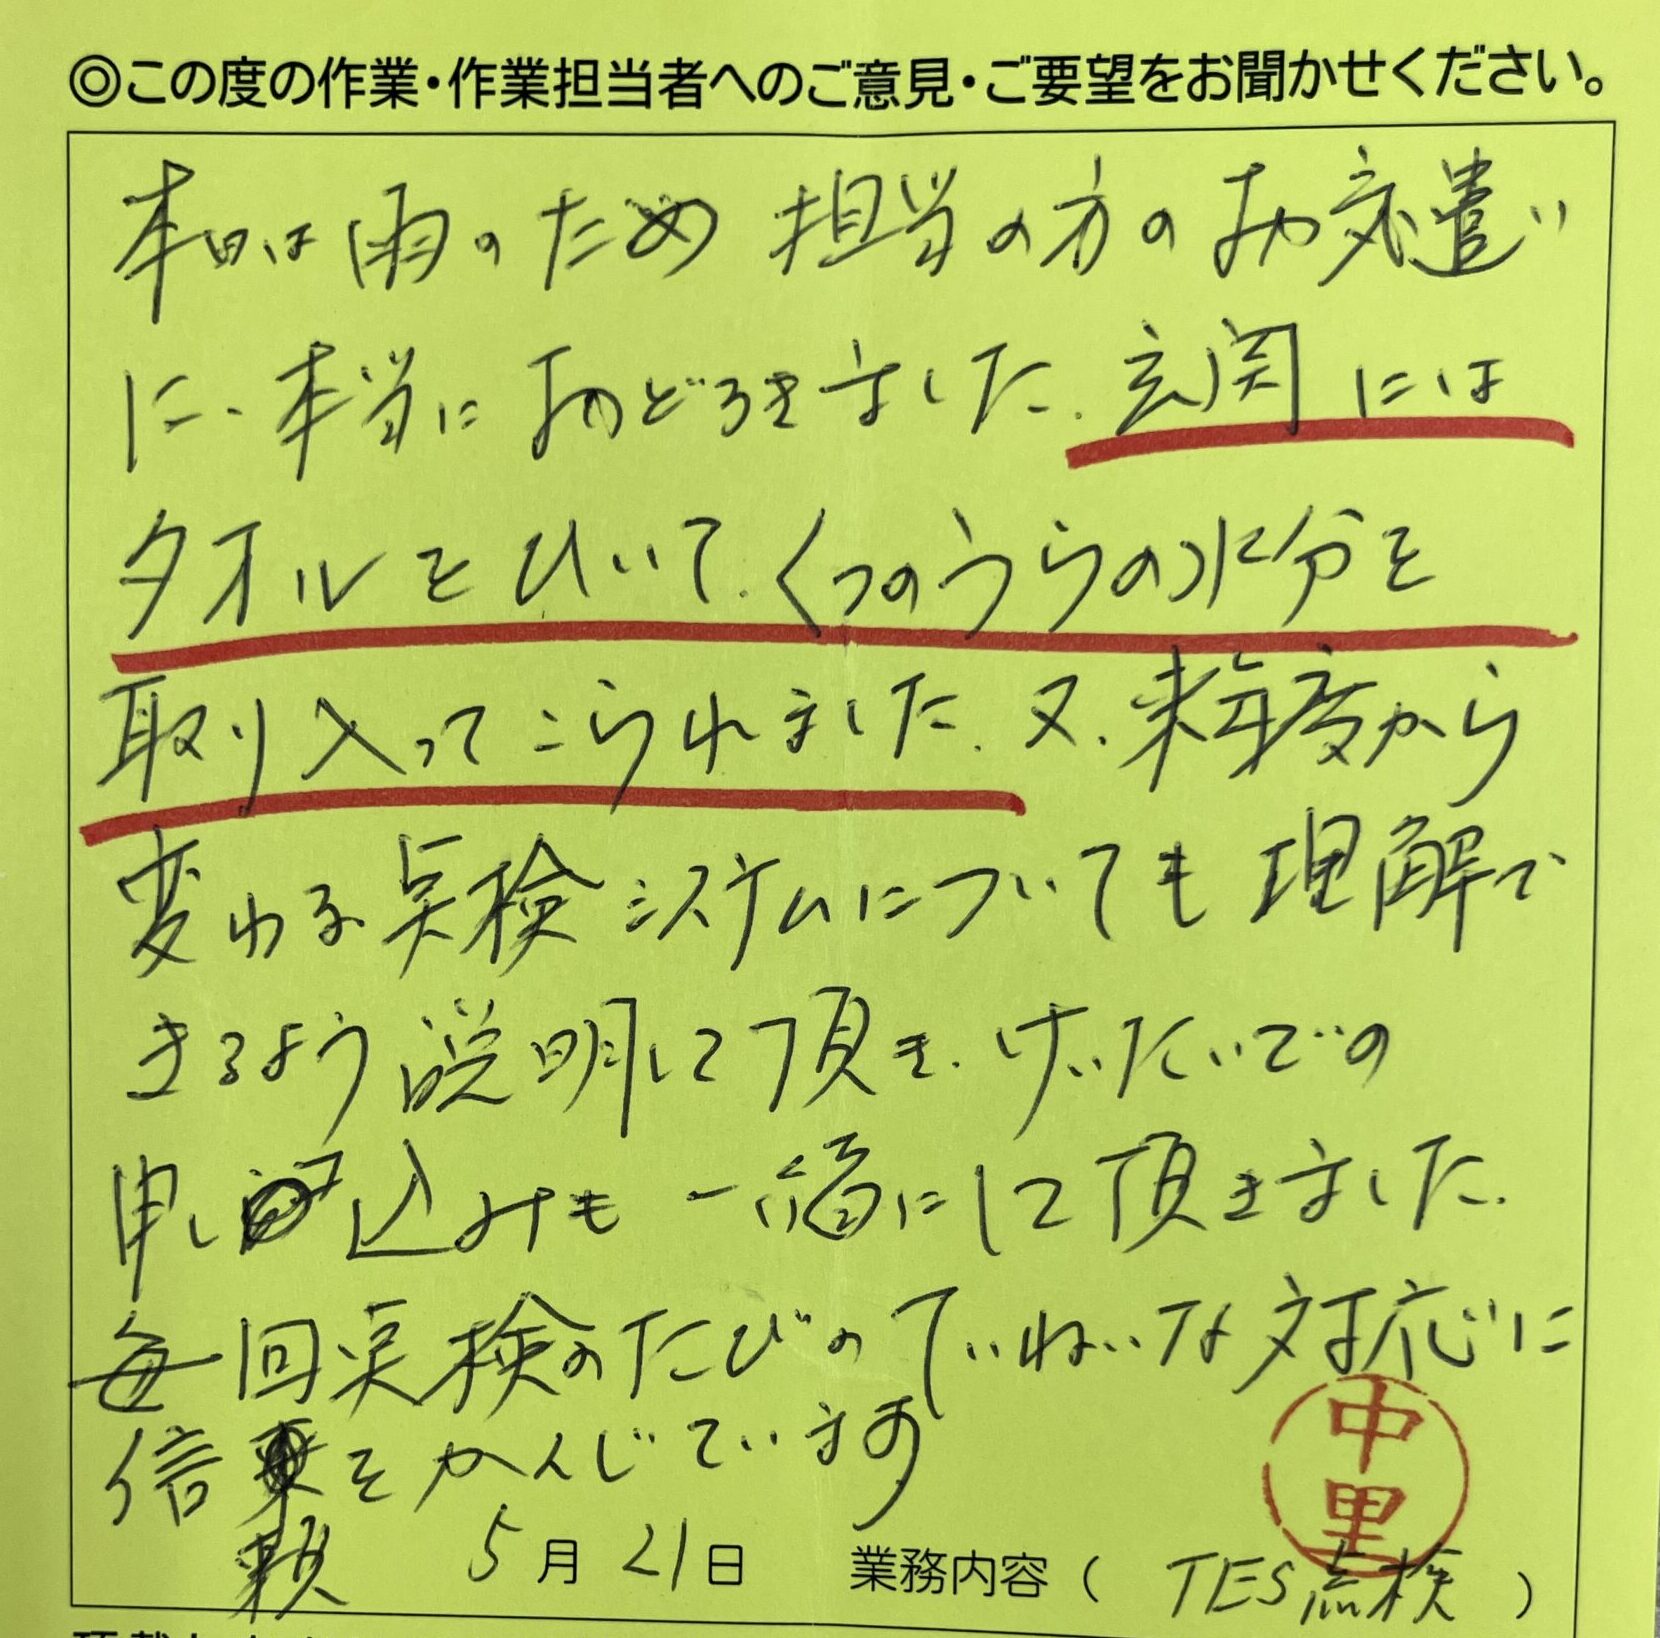 ◎この度の作業・作業担当者へのご意見・ご要望をお聞かせください。
本日は雨のため 担当の方のお気遣い
に、本当におどろきました。玄関には
タオルをひいて、くつのうらの水分を
取り入ってこられました。又、来年度から
変わる点検システムについても理解で
きるよう説明して頂き、けいたいでの
申し込みも一緒にして頂きました。
毎回点検のたびのていねいな対応に
信頼をかんじています
5月21日 業務内容（TES点検）
中里